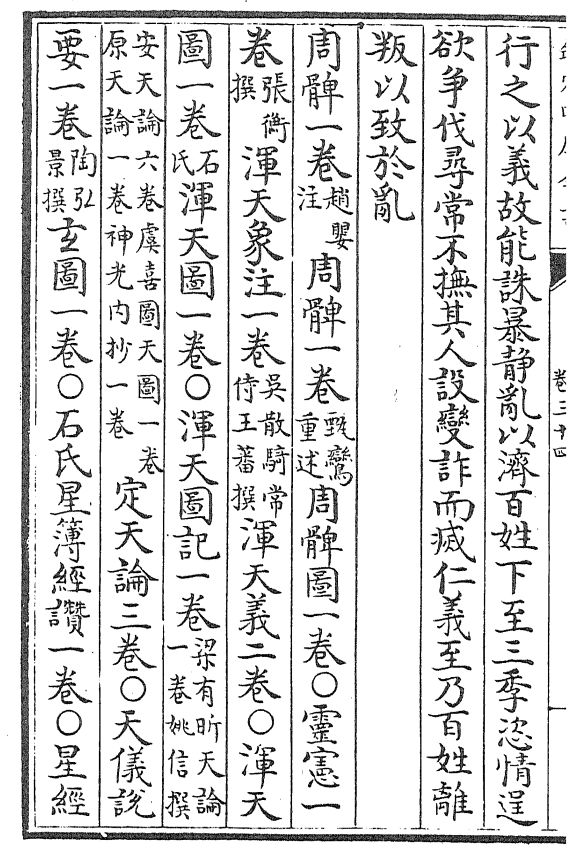 卷三十四
行之以義故能誅暴静亂以濟百姓下至三季恣情逞
欲争伐尋常不撫其人設變詐而滅仁義至乃百姓離
叛以致於亂
周髀一卷趙嬰注周髀一卷甄鸞重述周髀圖一卷〇靈憲一
卷張衡撰渾天象注一卷吴散騎常侍王蕃撰渾天義二卷〇渾天
圖一卷石氏渾天圖一卷〇渾天圖記一卷梁有昕天論一卷姚信撰
安天論六卷虞喜圖天圖一卷原天論一卷神光内抄一卷定天論三卷〇天儀説
要一卷陶弘景撰玄圖一卷〇石氏星簿經讚一卷〇星經